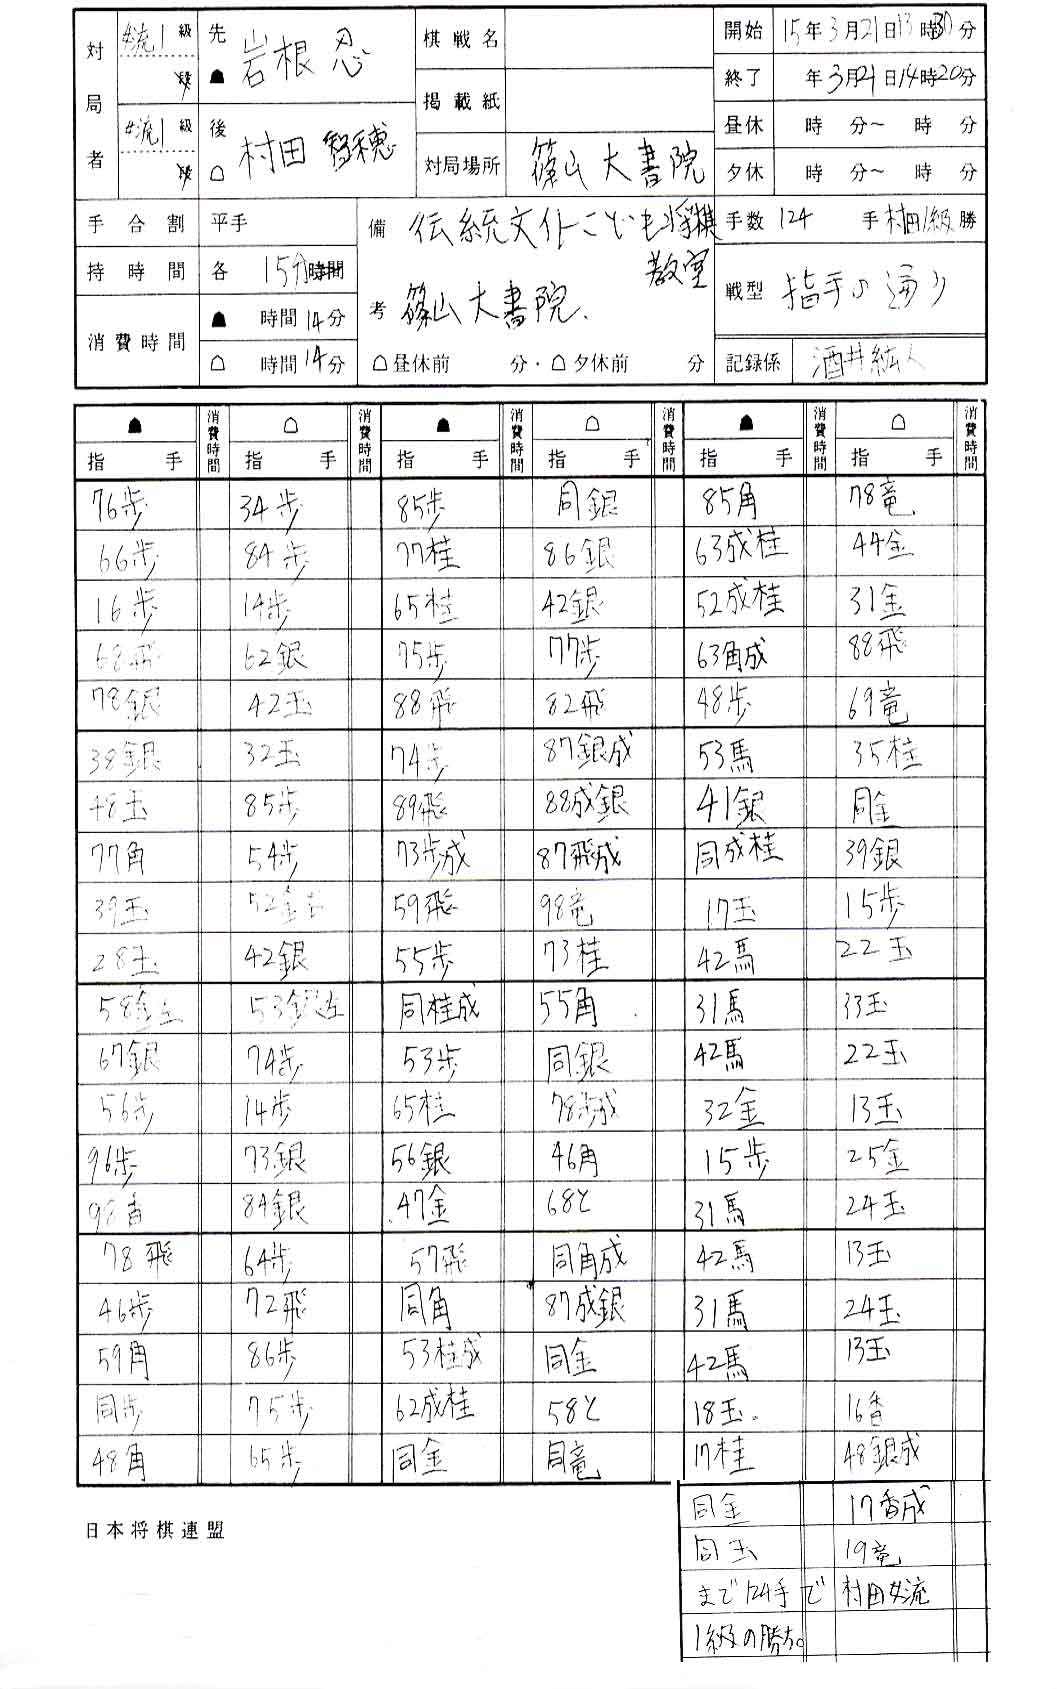 対局者 女流1級 段 先 ☗ 岩根 忍
女流1級 段 後 ☖ 村田 智穂
棋戦名
掲載紙
対局場所 篠山大書院
開始 15年3月21日13時30分
終了 年3月21日14時20分
昼休 時 分〜 時 分
夕休 時 分〜 時 分
手合割 平手
持時間 各 15分時間
消費時間 ☗ 時間14分
☖ 時間14分
備考 伝統文化こども将棋
教室
篠山大書院.
☖昼休前 分・☖夕休前 分
手数 124 手 村田1級 勝
戦型 指手の通り
記録係 酒井紘人
☗ 消費時間 ☖ 消費時間 ☗ 消費時間 ☖ 消費時間 ☗ 消費時間 ☖ 消費時間
指手 指手 指手 指手 指手 指手
76歩 34歩 85歩 同銀 85角 78竜
66歩 84歩 77桂 86銀 63成桂 44金
16歩 14歩 65桂 42銀 52成桂 31金
68飛 62銀 75歩 77歩 63角成 88飛
78銀 42玉 88飛 82飛 48歩 69竜
38銀 32玉 74歩 87銀成 53馬 35桂
48玉 85歩 89飛 88成銀 41銀 同金
77角 54歩 73歩成 87飛成 同成桂 39銀
39玉 52金右 59飛 98竜 17玉 15歩
28玉 42銀 55歩 73桂 42馬 22玉
58金左 53銀左 同桂成 55角 31馬 33玉
67銀 74歩 53歩 同銀 42馬 22玉
56歩 14歩 65桂 78歩成 32金 13玉
96歩 73銀 56銀 46角 15歩 25金
98香 84銀 47金 68と 31馬 24玉
78飛 64歩 57飛 同角成 42馬 13玉
46歩 72飛 同角 87成銀 31馬 24玉
59角 86歩 53桂成 同金 42馬 13玉
同歩 75歩 62成桂 58と 18玉. 16香
48角 65歩 同金 同竜 17桂 48銀成
同金 17香成
同玉 19竜
まで124手で 村田女流
1級の勝ち。
日本将棋連盟